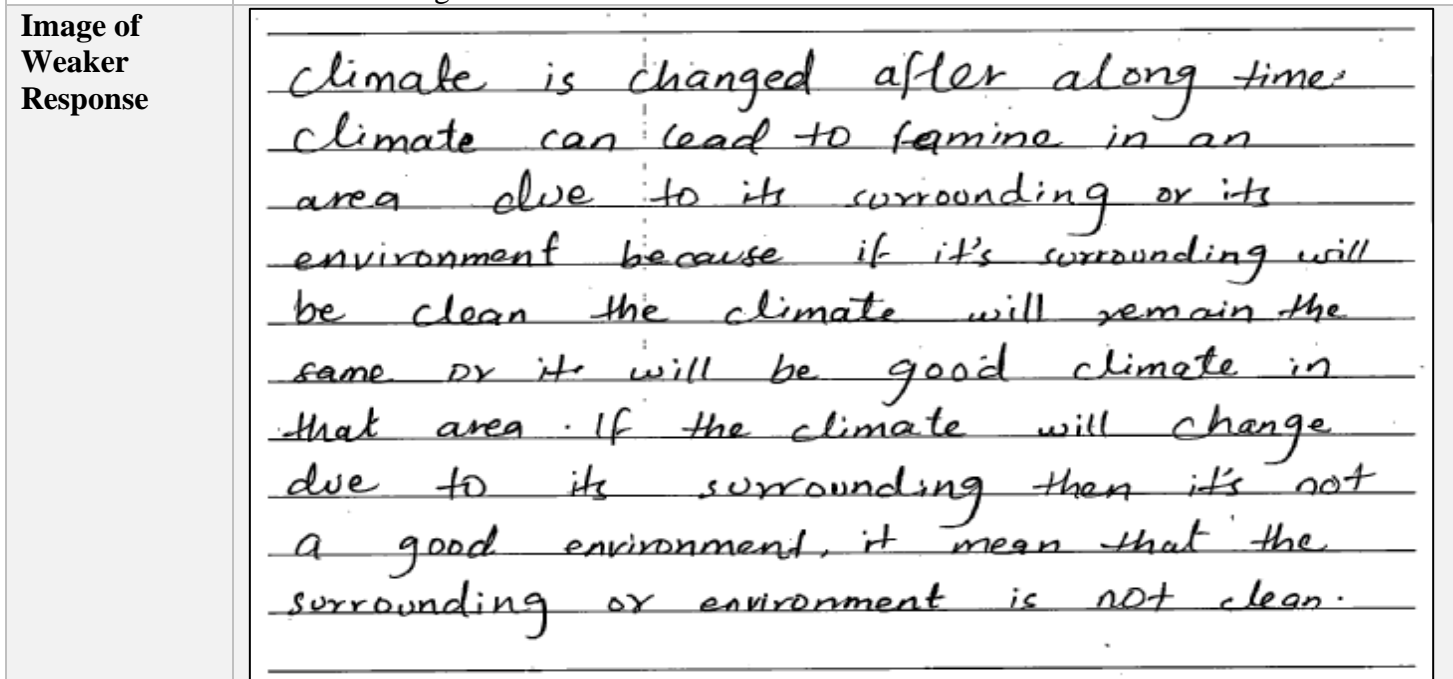 Image of
Weaker
Response
climate is changed after along time.
climate can lead to famine in an
area due to its surrounding or its
environment because if it's surrounding will
be clean the climate will remain the
same or it will be good climate in
that area. If the climate will change
due to its surrounding then it's not
a good environment, it mean that the
surrounding or environment is not clean.